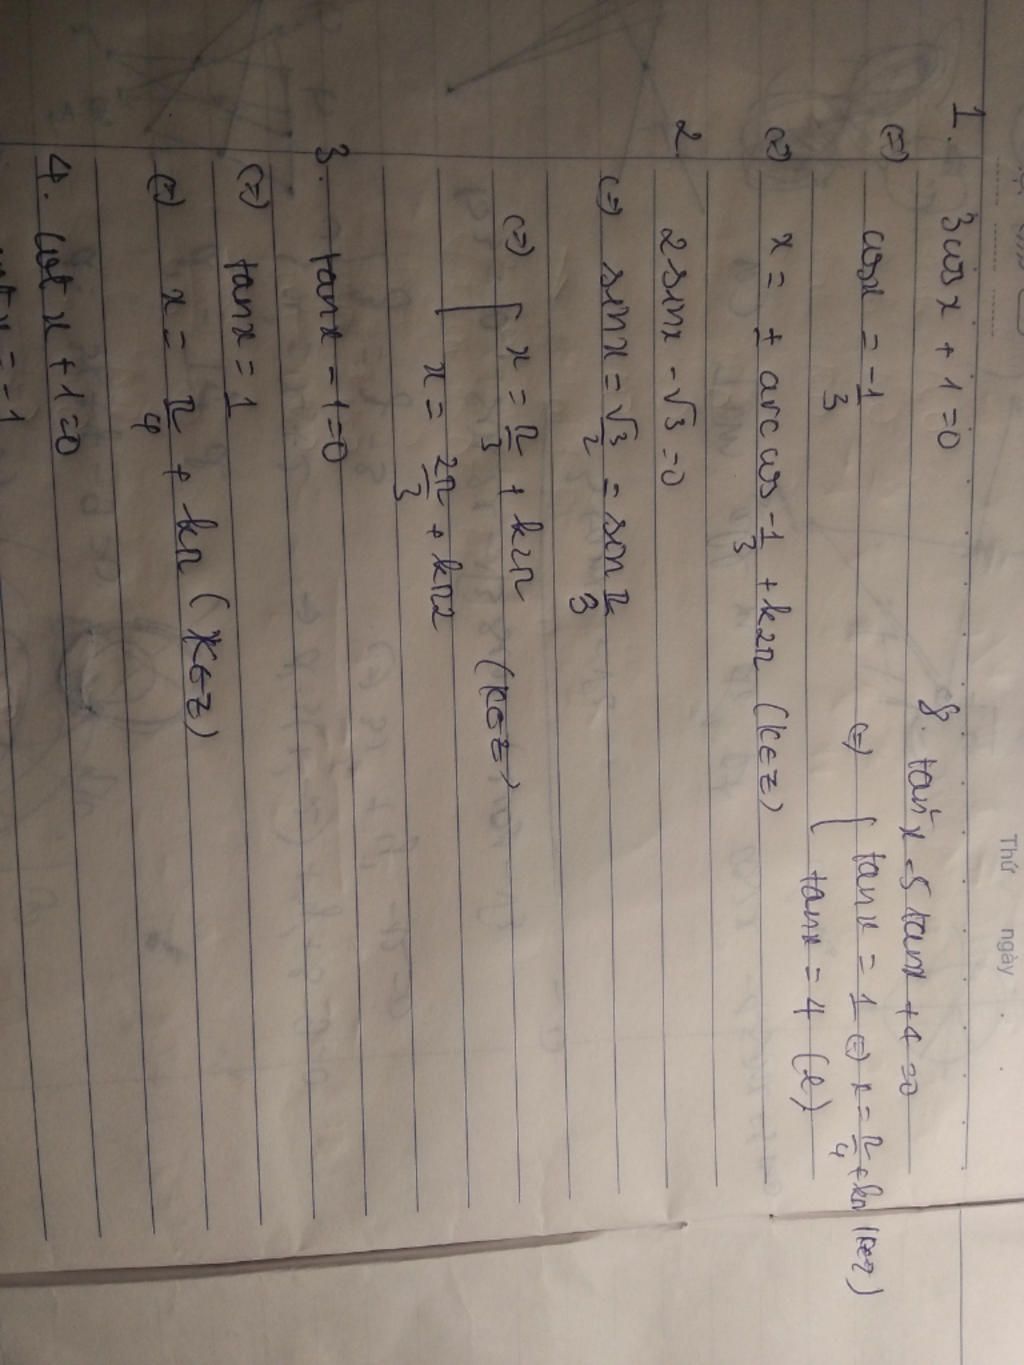 Thứ ngày
1. 3cosx + 1 = 0
(=) cosx = -1/3
(=) x = ± arccos -1/3 + k2π (k∈Z)
2. 2sinx - √3 = 0
(=) sinx = √3/2 = sin π/3
(=) [ x = π/3 + k2π
x = 2π/3 + kπ2 (K∈Z)
3. tanx - 1 = 0
(=) tanx = 1
(=) x = π/4 + kπ (K∈Z)
4. cot x + 1 = 0
cot x = -1
8. tan²x - 5tanx + 4 = 0
(=) [ tanx = 1 (=) x = π/4 + kπ (k∈Z)
tanx = 4 (l)